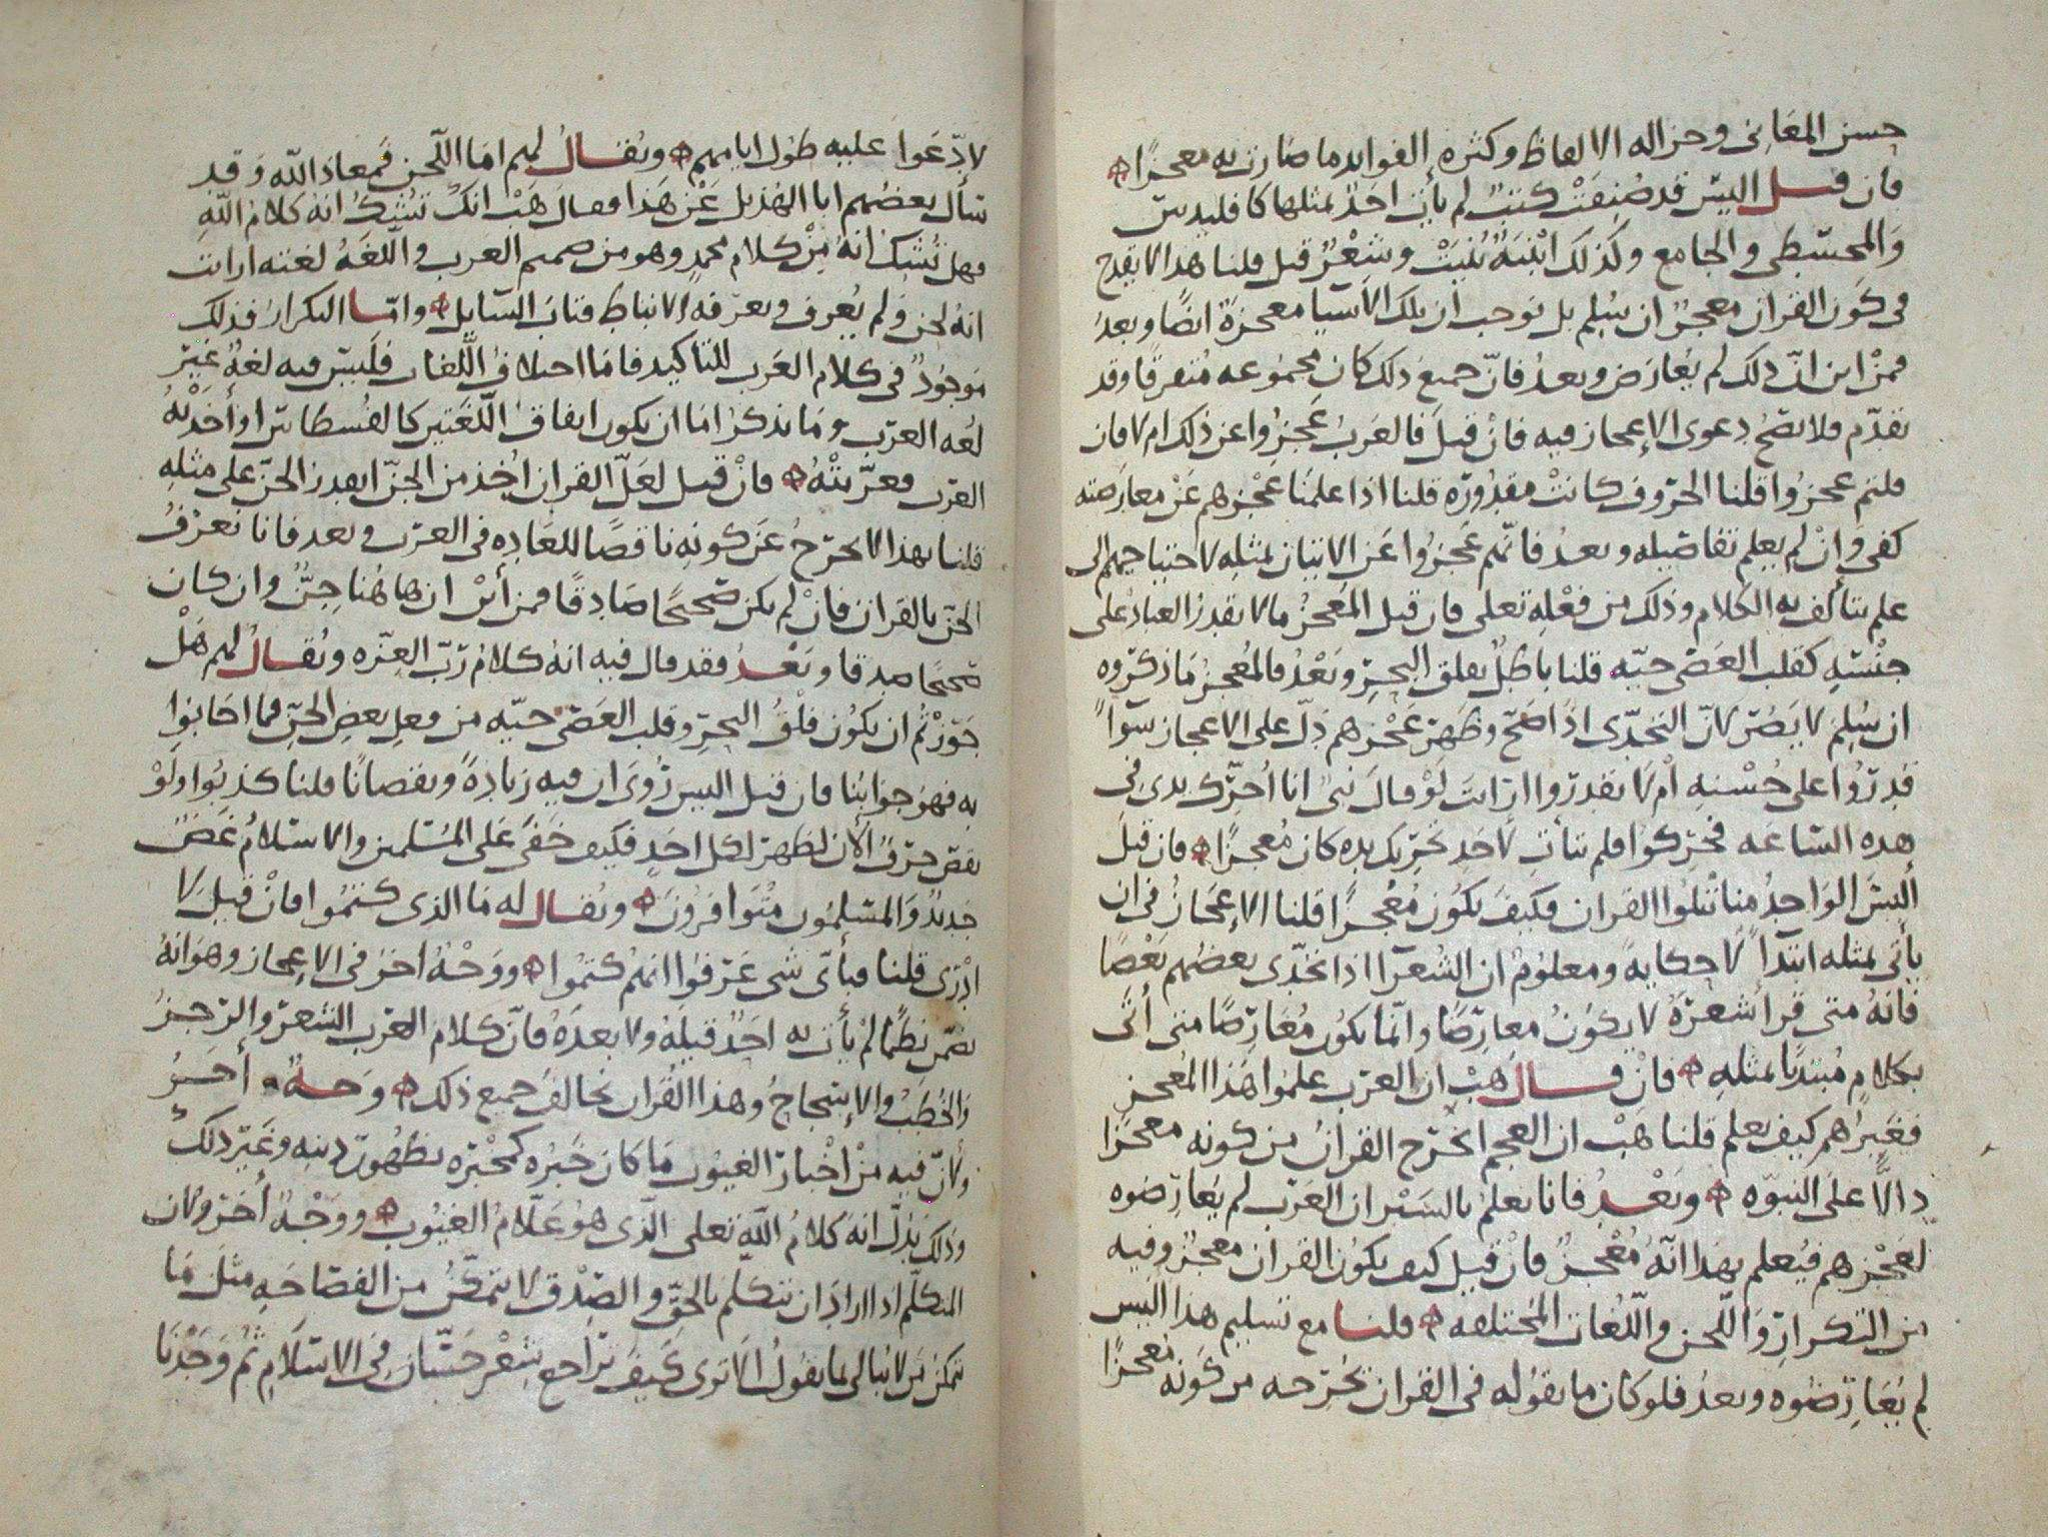 حسن المعاني وجزاله الالفاظ وكثره الفوايد ما صارت به معجزًا
فان قيل اليس قد صُنِفَتْ كتبٌ لم يأت احَدٌ بمثلها كاقليدس
وَالمجسّطي والجامع وكذلك ابْنيَهٌ بُنيَتْ وشعْرٌ قيل قلنا هذا لا يقدح
في كَون القران معجزٌ ان سُلِم بل يوجب ان تلك الاشيا معجزةً ايضًا وبعدُ
فمنْ اين انّ ذلك لم يُعارَض وبعدُ فانّ جميع ذلك كان مجموعه مُتفرقًا وقد
تقدّم فلا تصّحُ دعوى الاعجاز فيه فانْ قيلَ فالعربُ عَجزُوا عن ذلك ام لا فان
قلتم عجزُوا قلنا الحرُوف كانتْ مقدُورَه قلنا اذا علمنَا عَجْزهم عَنْ معارضته
كفى وَانْ لم يعلم تفاصيله وبعدُ فانّهم عَجزُوا عَن الاتيان بمثلِه لاحتياجهم الى
علم يتألّف به الكلام وذلك من فعْلِه تعلى فان قيل المُعجزُ ما لا يقدرُ العبادُ على
جنْسِهِ كقلب العَصَى حيّه قلنا باطلٌ بفلق البحْرِ وبَعْدُ فالمُعجزُ مَا ذكرُوه
ان سُلِمَ لا يَضُرّ لانّ التحَدّي اذَا صَحَّ وظهَرَ عَجْزهم دَلّ على الاعجاز سَوآً
قدِرُوا على جُنْسِهِ اَمْ لا يقدرُوا ارَايتَ لَوْ قالَ نبيٌ انا اُحرِّك يدي في
هذه السّاعه فحرِّكوا فلم يتأتِ لاحَدٍ تحْرِيك يده كان مُعجزًا فان قيل
أليْسَ الوَاحِدُ منا يتلُوا القران فكيفَ يكوُن مُعْجزًا قلنا الاعجَازُ في ان
يأتي بمثله ابتدآً لا حِكايةً ومعلوُمٌ ان الشُعرَا اذا تحَدّى بعضُهم بَعْضًا
فانهُ متى قرأ شعرَهُ لا يكونُ معارِضًا وانّما يكوُن مُعَارِضًا متى أتى
بكلامٍ مُبتدئًا بمثلهِ فانْ قال هَبْ ان العرَب علموُا هَذا المُعجز
فغيرُهم كيف يعلم قلنا هَبْ ان العجم اتخرّج القرانُ من كونه معجزًا
دالًّا علَى النبوّه وبَعْدُ فانا نعلمُ بالسَبْر ان العرَب لم يُعارضُوه
لعَجْزِهم فيُعلم بهَذا انّهُ مُعْجزٌ فانْ قيل كيف يكوُن القران معجزٌ وفيه
من التكرارِ وَاللّحن واللّغات المُختلفه قلنا مع تسليم هذا اليس
لم يُعَارِضُوه وبعدُ فلو كان ما يقوله في القران يخرّجه من كَونه معجزًا
لادّعَوا عليه طوُل ايامهم ويُقالُ لهم امّا اللّحن فمعاذ اللّه وَقد
سَأل بعضُهم ابا الهُذيل عَنْ هَذا فقالَ هَبْ انكَ تشُكُ انه كلامُ اللّهِ
فهل تشُك انهُ مِنْ كلام محمدٍ وهو من صميم العرب واللّغهُ لغته ارايت
انهُ لحن وَلم يُعرَف ويعرّفهُ الانباط فتابَ السّايل وامّا التكرارُ فذلك
مَوجُودٌ في كلام العَرَب للتاكيد فامّا اختلافُ اللّغات فلَيسَ فيه لغةٌ غيْر
لغه العرَب وَمَا يذكرُ امّا ان يكون اتفاقُ اللّغَتين كالقسُطاس او أخذتْهُ
العرَب فعرّبتْهُ فانْ قيل لعَلّ القران اُخِذ من الجنّ ايقدرُ الجنّ على مثلِه
قلنا بهذا لا يخرّجُ عَن كونِه ناقضًا للعَادِه في العرَب وبعد فانا نعرْفُ
الجنّ بالقرآن فانْ لم يكن صَحيحًا صَادقًا فمن أيْن ان هاهُنا جِنٌّ وان كان
صَحيحًا صِدقا وبَعْدُ فقد قال فيه انهُ كلامُ رَبّ العزّه ويُقالُ لهم هَلْ
جَوّزْتُم ان يكوُن فلْقُ البحْرِ وقلبُ العَصَى حيّه من فعلِ بعضِ الجنّ فما اجَابوُا
به فهوَ جوابُنا فان قيل اليس رُويَ ان فيه زيادةً ونقصانًا قلنا كذبُوا ولَوْ
نقصَ حرْفٌ الآن لظهرَ لكل احَدٍ فكيف خفيَ علَى المُسْلمين والاسْلامُ غضٌ
جَديدٌ وَالمسْلموُن متْوَافرُونَ ويُقال له مَا الذي كتمُوا فانْ قيلَ لا
ادْرِي قلنا فبأيّ شي عَرَفوُا انهُم كتمُوا ووَجْهٌ اخرَ في الاعجاز وهوَ انهُ
تضمّن نظْمًا لمْ يأت به احَدٌ قبلَهُ ولا بعدَهُ فانّ كلامَ العرَب الشعرُ والرّجزُ
وَالخطَبُ والاسْجاعُ وهذا القُران يخالفُ جميع ذلك وَجهٌ أخَرُ
ولأنّ فيه منْ اخْبار الغيوُب مَا كان خَبرُه كمخْبَره بظهُورِ دينِه وغَيْر ذلك
وَذلك يَدُلّ انهُ كلامُ اللّه تعلى الّذي هوُ عَلّامُ الغيُوب ووَجْهٌ أخَر ولان
المتكلّم اذا ارَادَ ان يتكلّم بالحقّ والصِدْق لا يتمكّنُ من الفصَاحَهِ مثلَ مَا
يتمكن مَن لا يُبالي بما يقوُلُ الا ترى كيْفَ ترَاجع شِعْر حَسّان في الاسْلامِ ثمُ وَجَدْنا